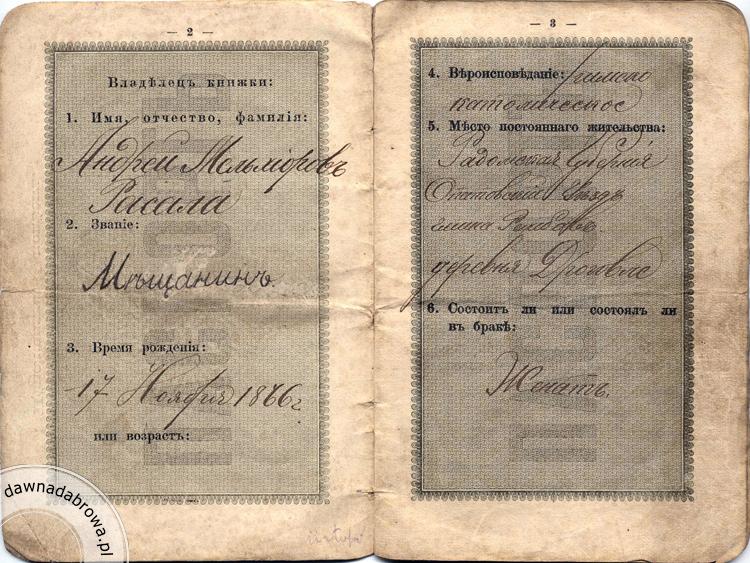 — 2 —
Владѣлецъ книжки:
1. Имя, отчество, фамилія:
Андрей
Расала
2. Званіе:
Мѣщанинъ.
3. Время рожденія:
17 Ноября 1866 г
или возрастъ:
— 3 —
4. Вѣроисповѣданіе: римско
католическое
5. Мѣсто постояннаго жительства:
Радомская Губернія
Опатовскій Уѣздъ
гмина
деревня
6. Состоитъ ли или состоялъ ли
въ бракѣ:
Женатъ.
dawnadabrowa.pl